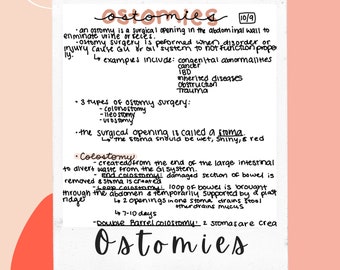 ostomies
10/9
- an ostomy is a surgical opening in the abdominal wall to
eliminate urine or feces.
- ostomy surgery is performed when disorder or
injury cause GU or GI system to not function prope
rly.
↳ examples include: congenital abnormalities
cancer
IBD
inherited diseases
obstruction
trauma
- 3 types of ostomy surgery:
- colonostomy
- ileostomy
- urostomy
- the surgical opening is called a stoma.
↳ the stoma should be wet, shiny, & red
• Colostomy
- created from the end of the large intestinal
to divert waste from the GI system.
- End colostomy: damaged section of bowel is
removed & stoma is created
- Loop colostomy: loop of bowel is brought
through the abdomen & temporarily supported by a plast
ridge
↳ 2 openings in one stoma: drains stool
other drains mucus
↳ 7-10 days
- Double Barrel colostomy: 2 stomas are crea
Ostomies